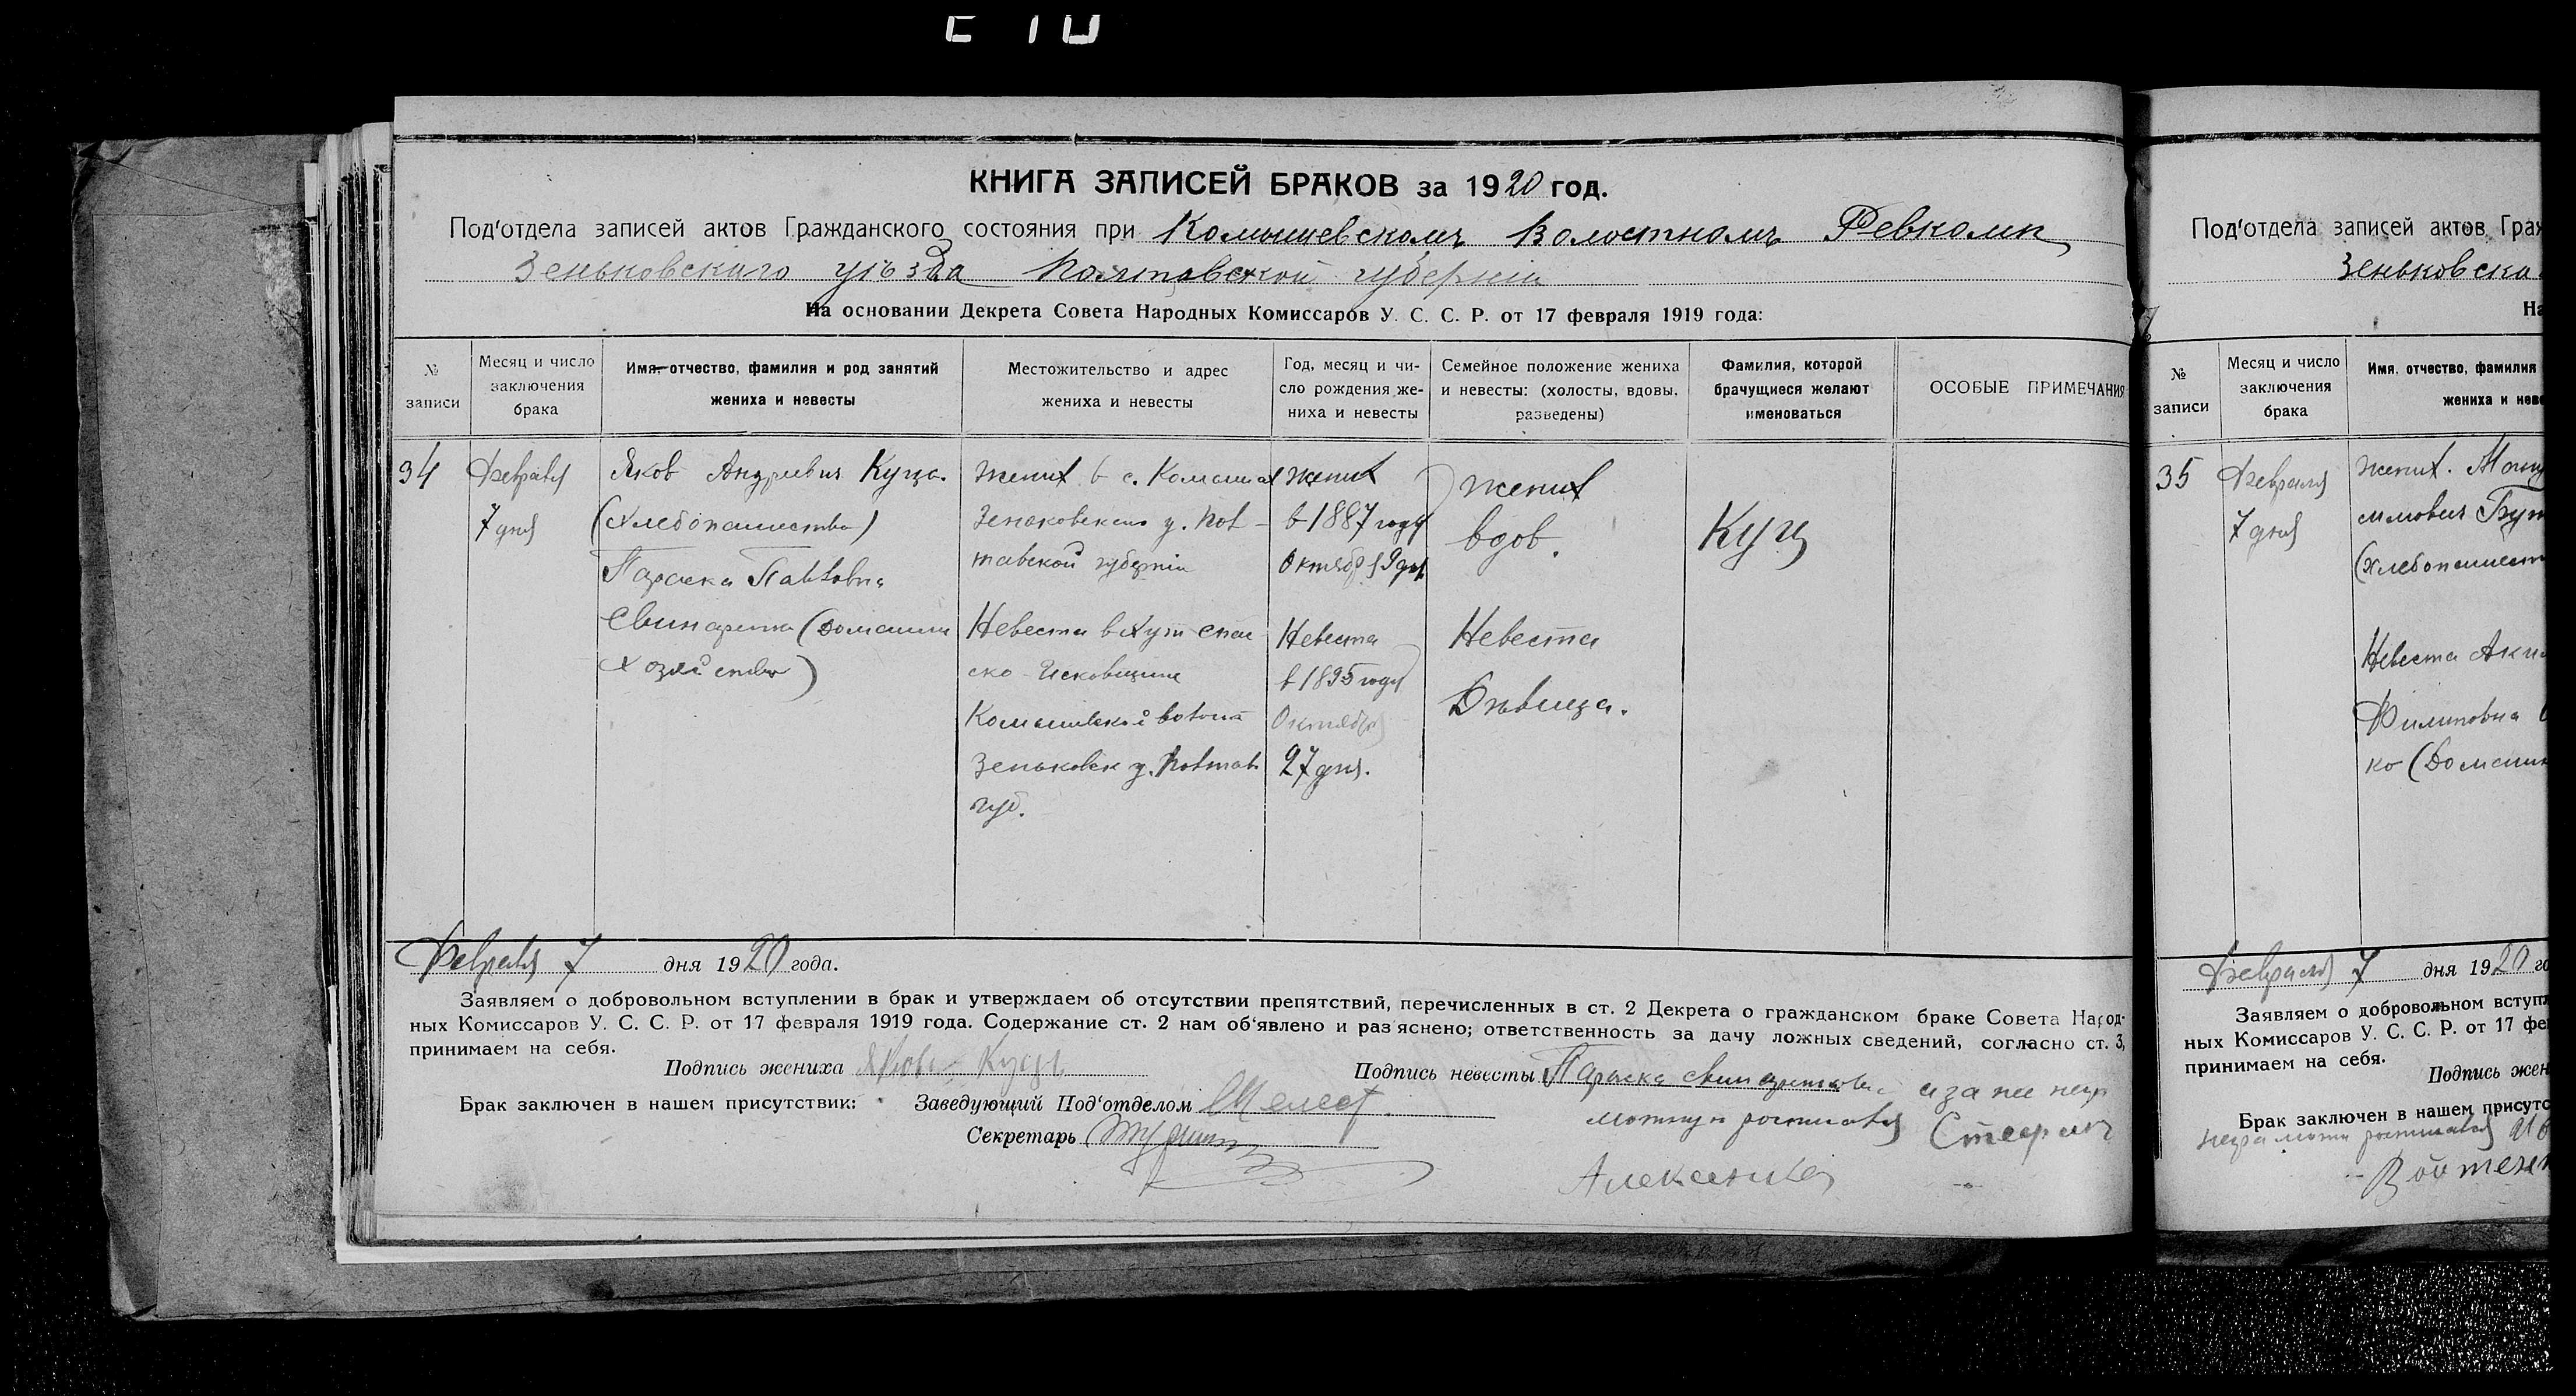 КНИГА ЗАПИСЕЙ БРАКОВ за 1920 год.
Под'отдела записей актов Гражданского состояния при Комышевскомъ Волостномъ Ревкоми
Зеньковскаго уѣзда Полтавской губерніи
На основании Декрета Совета Народных Комиссаров У. С. С. Р. от 17 февраля 1919 года:
№ записи
Месяц и число заключения брака
Имя, отчество, фамилия и род занятий жениха и невесты
Местожительство и адрес жениха и невесты
Год, месяц и число рождения жениха и невесты
Семейное положение жениха и невесты: (холосты, вдовы, разведены)
Фамилия, которой брачущиеся желают именоваться
ОСОБЫЕ ПРИМЕЧАНИЯ
34
Февраля
7 дня
Яков Андреевич Куца.
(хлебопашество)
Параска Павловна
Свинаренко (Домашн
хозяйство)
Жених в с. Комышах
Зеньковскаго у. Пол-
тавской губерніи
Невеста в хут
Комышевской волости
Зеньковск у. Полтав
губ.
жених
в 1887 году
Октября 9 дня
Невеста
в 1895 году
Октября
27 дня.
жених
вдов.
Невеста
Дѣвица.
Куц
Февраля 7 дня 1920 года.
Заявляем о добровольном вступлении в брак и утверждаем об отсутствии препятствий, перечисленных в ст. 2 Декрета о гражданском браке Совета Народ-
ных Комиссаров У. С. С. Р. от 17 февраля 1919 года. Содержание ст. 2 нам об'явлено и раз'яснено; ответственность за дачу ложных сведений, согласно ст. 3,
принимаем на себя.
Подпись жениха Яковъ Куцъ
Подпись невесты Параска а за нее негр
мотную росписався Стефан
Брак заключен в нашем присутствии: Заведующий Под'отделом Шелест
Секретарь
35
Февраля
7 дня
жених.
(хлебопашест
Невеста
Филиповна
ко (Домашн
Под'отдела записей актов Граж
Зеньковска
На
№ записи
Месяц и число заключения брака
Имя, отчество, фамилия
жениха и неве
Февраля 7 дня 1920 го
Заявляем о добровольном вступл
ных Комиссаров У. С. С. Р. от 17 фев
принимаем на себя.
Подпись жен
Брак заключен в нашем присутс